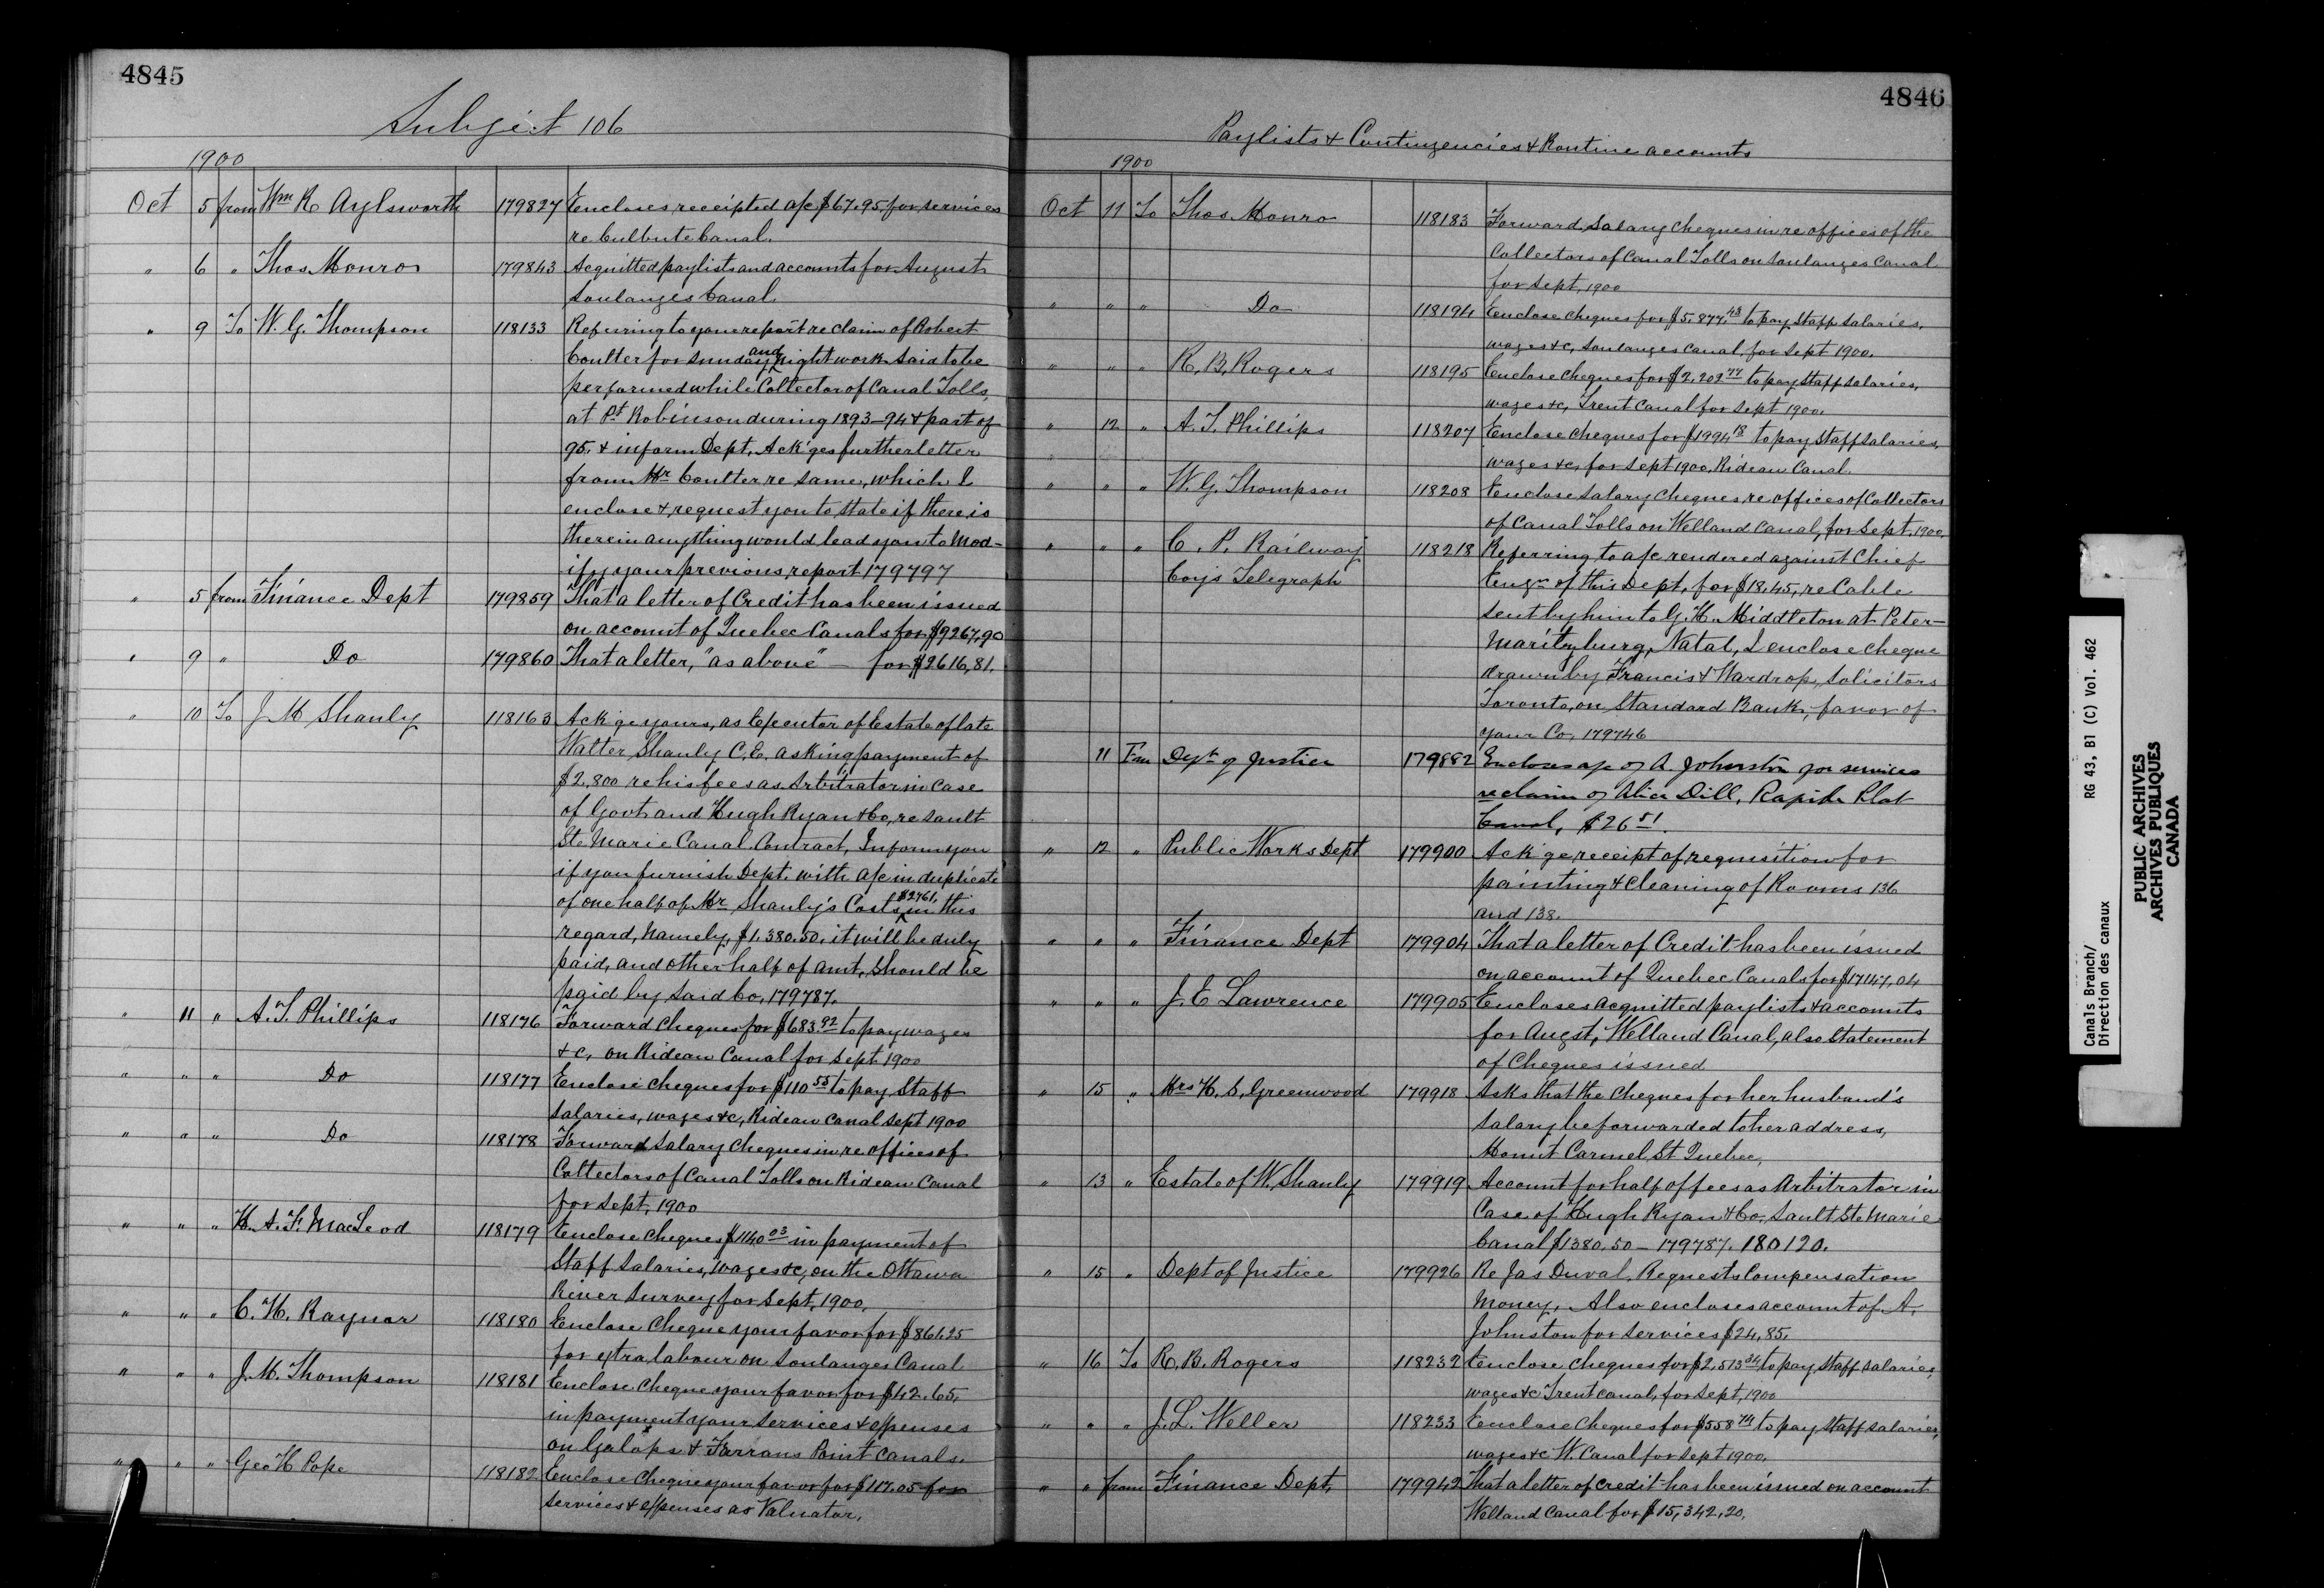 4845
Subject 106
1900
Oct 5 from Wm R Aylsworth 179827 Encloses receipted a/c $67.95, for services
re Culbute Canal.
" 6 " Thos. Monro 179843 Acquitted paylists and accounts for August
Soulanges Canal.
" 9 To W. G. Thompson 118133 Referring to your report re claim of Robert
Coulter for Sunday and night work said to be
performed while Collector of Canal Tolls,
at Pt Robinson during 1893-94 & part of
95. & inform Dept. Ack'ges further letter
from Mr Coulter re same, which I
enclose & request you to state if there is
therein anything would lead you to mod-
ify your previous report 179797
" 5 from Finance Dept 179859 That a letter of Credit has been issued
on account of Quebec Canals for $9267,90
" 9 " Do 179860 That a letter, "as above" - for $2616,81.
" 10 To J M Shanly 118163 Ack'ge yours, as Executor of Estate of late
Walter Shanly C.E. asking payment of
$2,800 re his fees as Arbitrator in case
of Govt and Hugh Ryan & Co, re Sault
Ste Marie Canal Contract, Inform you
if you furnish Dept. with a/c in duplicate
of one half of Mr Shanly's Costs $2761, in this
regard, namely, $1.380.50. it will be duly
paid, and other half of amt, should be
paid by said Co. 179787.
" 11 " A. T. Phillips 118176 Forward cheques for $683.92 to pay wages
&c, on Rideau Canal for Sept 1900
" " " Do 118177 Enclose cheques for $110 55 to pay Staff
salaries, wages &c, Rideau Canal Sept 1900
" " " Do 118178 Forward Salary Cheques in re offices of
Collectors of Canal Tolls on Rideau Canal
for Sept, 1900
" " " H. A. F. MacLeod 118179 Enclose Cheques $1140 03 in payment of
Staff Salaries, wages &c, on the Ottawa
River Survey for Sept, 1900,
" " " C. H. Raynor 118180 Enclose Cheque your favor for $861.25
for extra labour on Soulanges Canal
" " " J. M. Thompson 118181 Enclose Cheque your favor for $42.65,
in payment your services & expenses
on Galops & Farrans Point Canals.
" " " Geo H Pope 118182 Enclose Cheque your favor for $117.05 for
services & expenses as Valuator.
4846
Paylists & Contingencies & Routine accounts
1900
Oct 11 To Thos. Monro 118183 Forward, Salary Cheques in re offices of the
Collectors of Canal Tolls on Soulanges Canal
for Sept, 1900
" " " Do 118194 Enclose cheques for $5,877.43 to pay Staff salaries,
wages &c, Soulanges Canal, for Sept 1900.
" " " R. B. Rogers 118195 Enclose Cheques for $2,202 77 to pay staff salaries,
wages &c, Trent Canal for Sept 1900.
" 12 " A. T. Phillips 118207 Enclose cheques for $1994 18 to pay Staff salaries,
wages &c, for Sept 1900. Rideau Canal.
" " " W. G. Thompson 118208 Enclose Salary Cheques re offices of Collectors
of Canal Tolls on Welland Canal, for Sept. 1900.
" " " C. P. Railway 118218 Referring to a/c rendered against Chief
Coy's Telegraph Engr of this Dept, for $18.45, re Cable
sent by him to G. H. Middleton at Peter-
maritzburg, Natal, I enclose cheque
drawn by Francis & Wardrop, Solicitors
Toronto, on Standard Bank, favor of
your Co. 179746
11 Fm Dept of Justice 179882 Encloses a/c of A. Johnston for services
re claim of Alice Dill, Rapide Plat
Canal, $26 51.
" 12 " Public Works Dept 179900 Ack'ge receipt of requisition for
painting & cleaning of Rooms 136
and 138.
" " " Finance Dept 179904 That a letter of Credit has been issued
on account of Quebec Canals for $17147,04
" " " J. E Lawrence 179905 Encloses acquitted paylists & accounts
for Augst, Welland Canal, also Statement
of Cheques issued
" 15 " Mrs H. S. Greenwood 179918 Asks that the Cheques for her husband's
Salary be forwarded to her address,
Mount Carmel St Quebec,
" 13 " Estate of W. Shanly 179919 Account for half of fees as Arbitrator in
Case of Hugh Ryan & Co, Sault Ste Marie
Canal $1380.50 - 179787. 180120.
" 15 " Dept of Justice 179926 Re Jas Duval, Requests Compensation
Money, Also encloses account of A.
Johnston for services $24,85.
" 16 To R. B. Rogers 118232 Enclose cheques for $2,513 34 to pay Staff salaries,
wages &c Trent canal, for Sept, 1900
" " " J. L. Weller 118233 Enclose Cheques for $558 74 to pay Staff salaries,
wages &c W. Canal for Sept 1900.
" " from Finance Dept, 179942 That a letter of credit has been issued on account
Welland Canal for $15,342,20.
Canals Branch/ RG 43, B1 (C) Vol. 462
Direction des canaux
PUBLIC ARCHIVES
ARCHIVES PUBLIQUES
CANADA